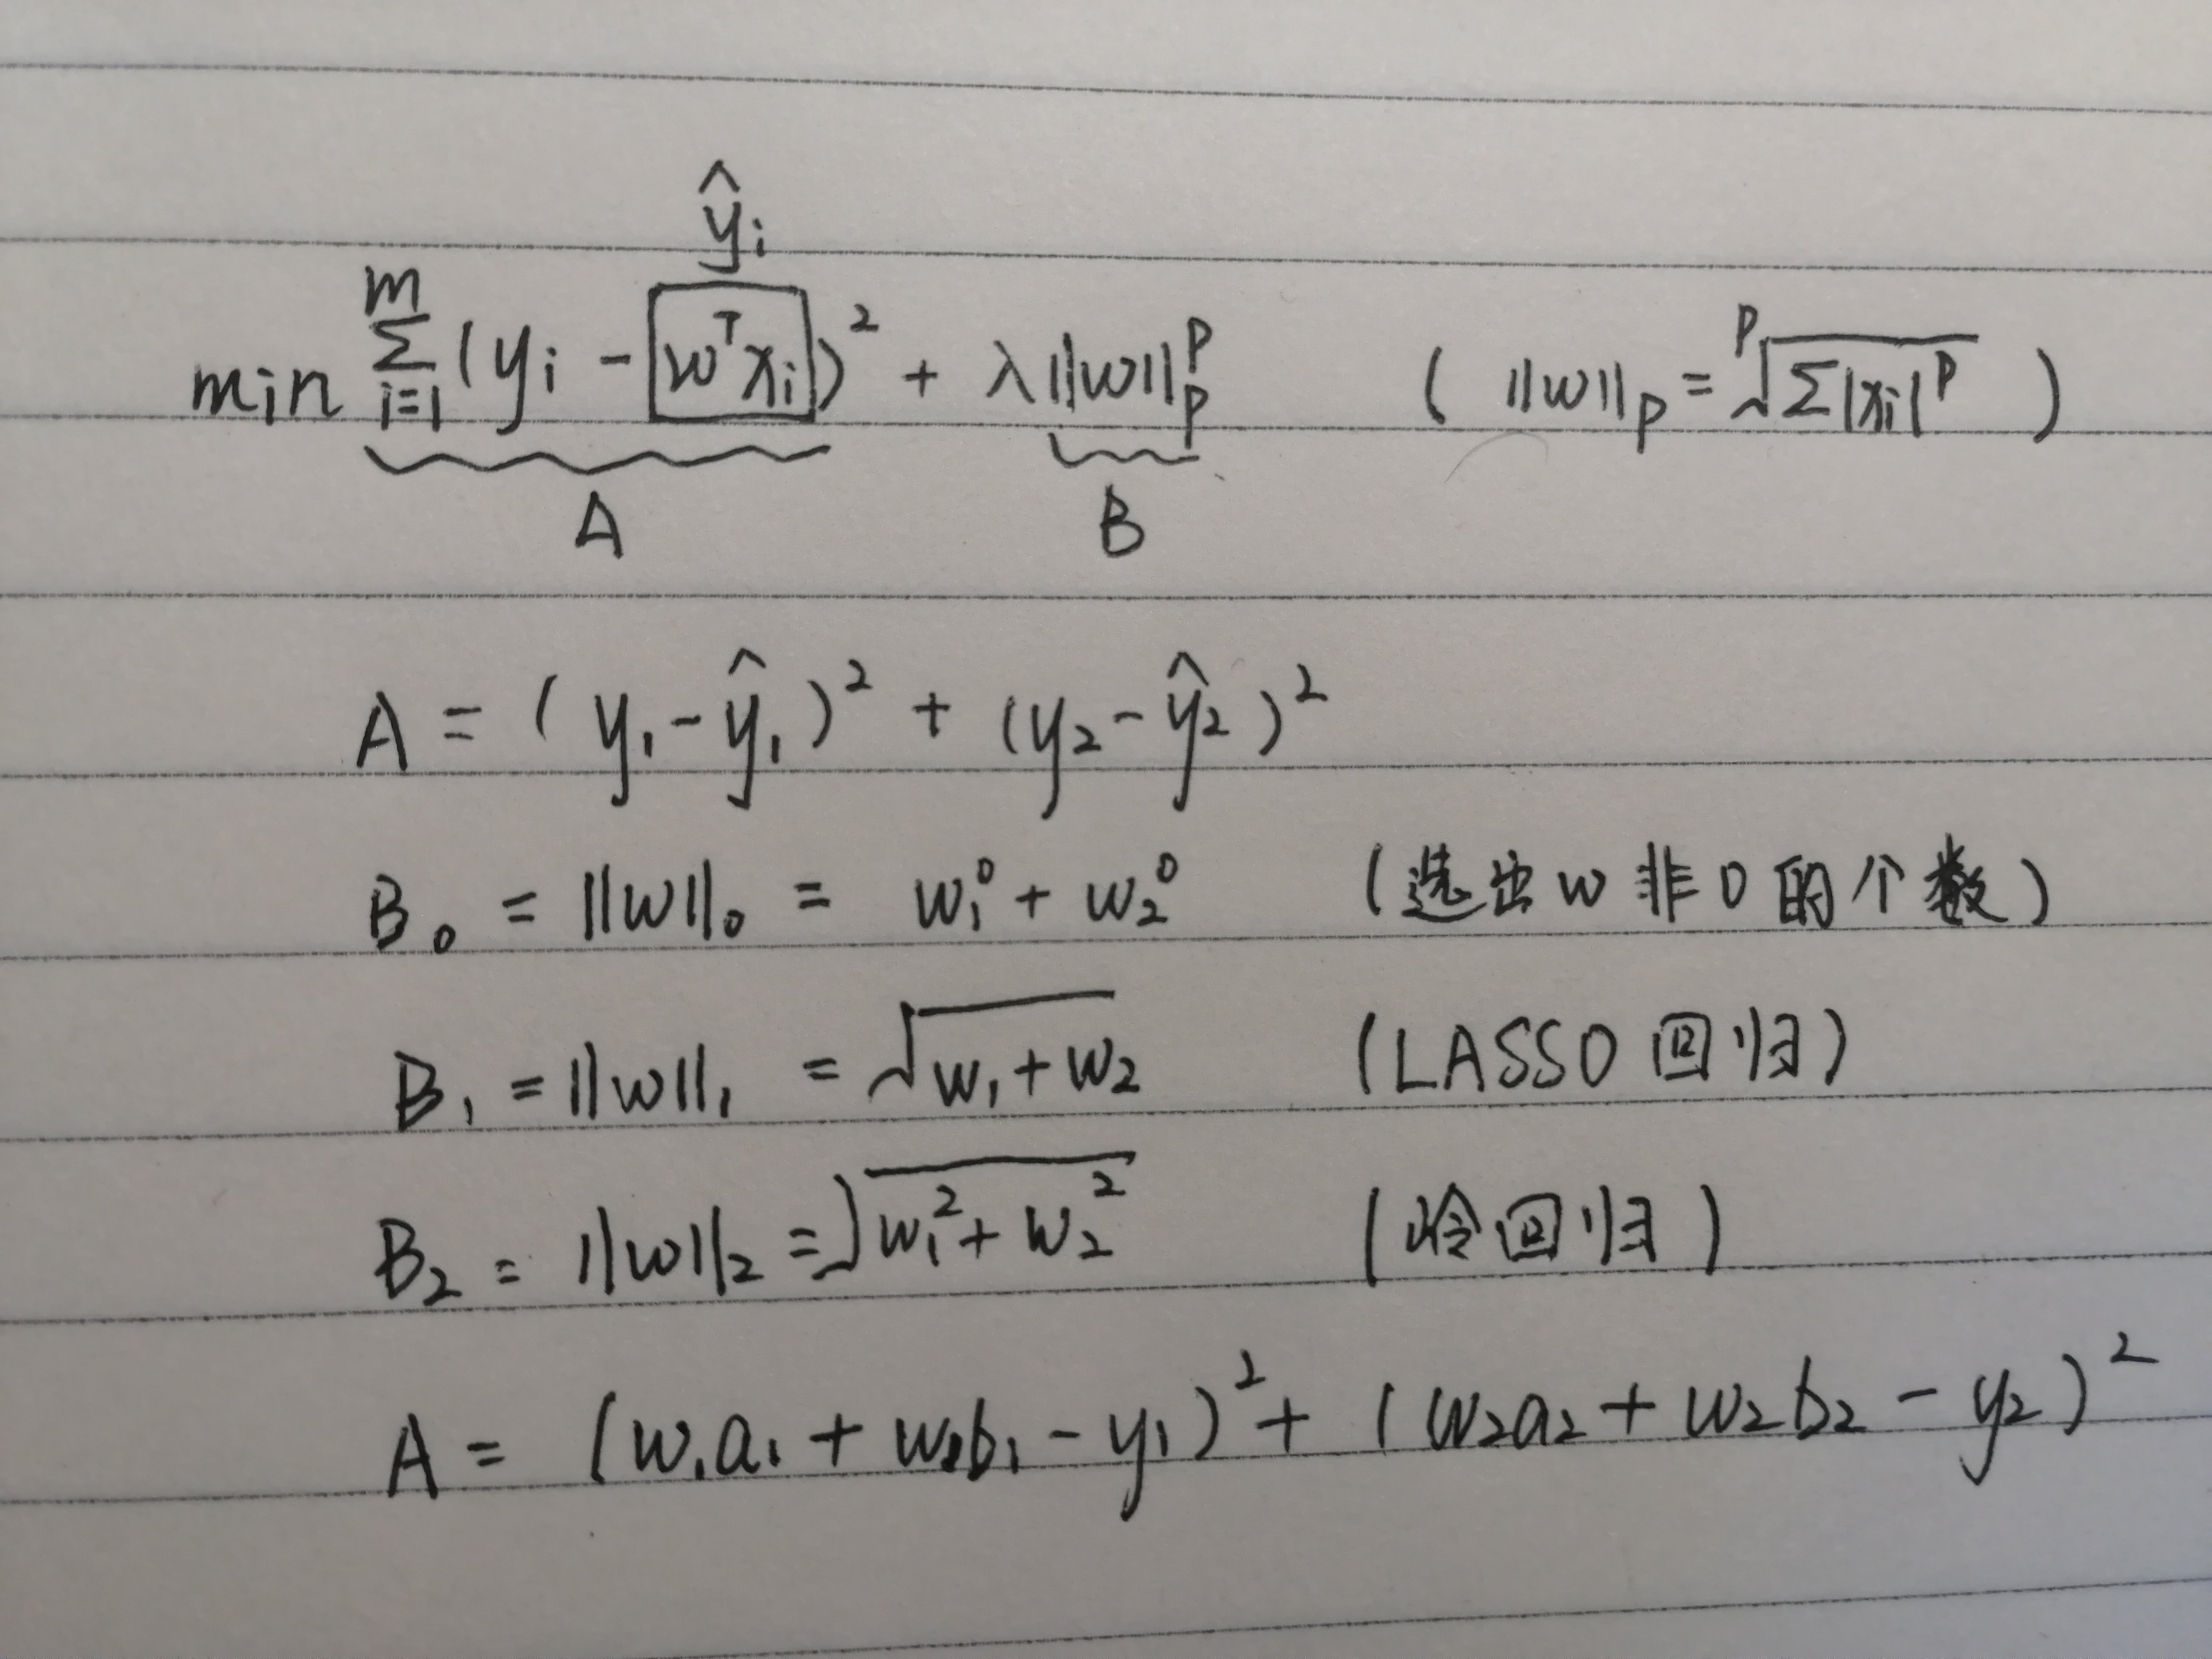 ŷᵢ
min Σᵢ₌₁ᵐ (yᵢ - wᵀxᵢ)² + λ||w||ₚᵖ ( ||w||ₚ = ᵖ√Σ|xᵢ|ᵖ )
A B
A = (y₁ - ŷ₁)² + (y₂ - ŷ₂)²
B₀ = ||w||₀ = w₁⁰ + w₂⁰ (选出w非0的个数)
B₁ = ||w||₁ = √w₁ + w₂ (LASSO回归)
B₂ = ||w||₂ = √w₁² + w₂² (岭回归)
A = (w₁a₁ + w₂b₁ - y₁)² + (w₂a₂ + w₂b₂ - y₂)²